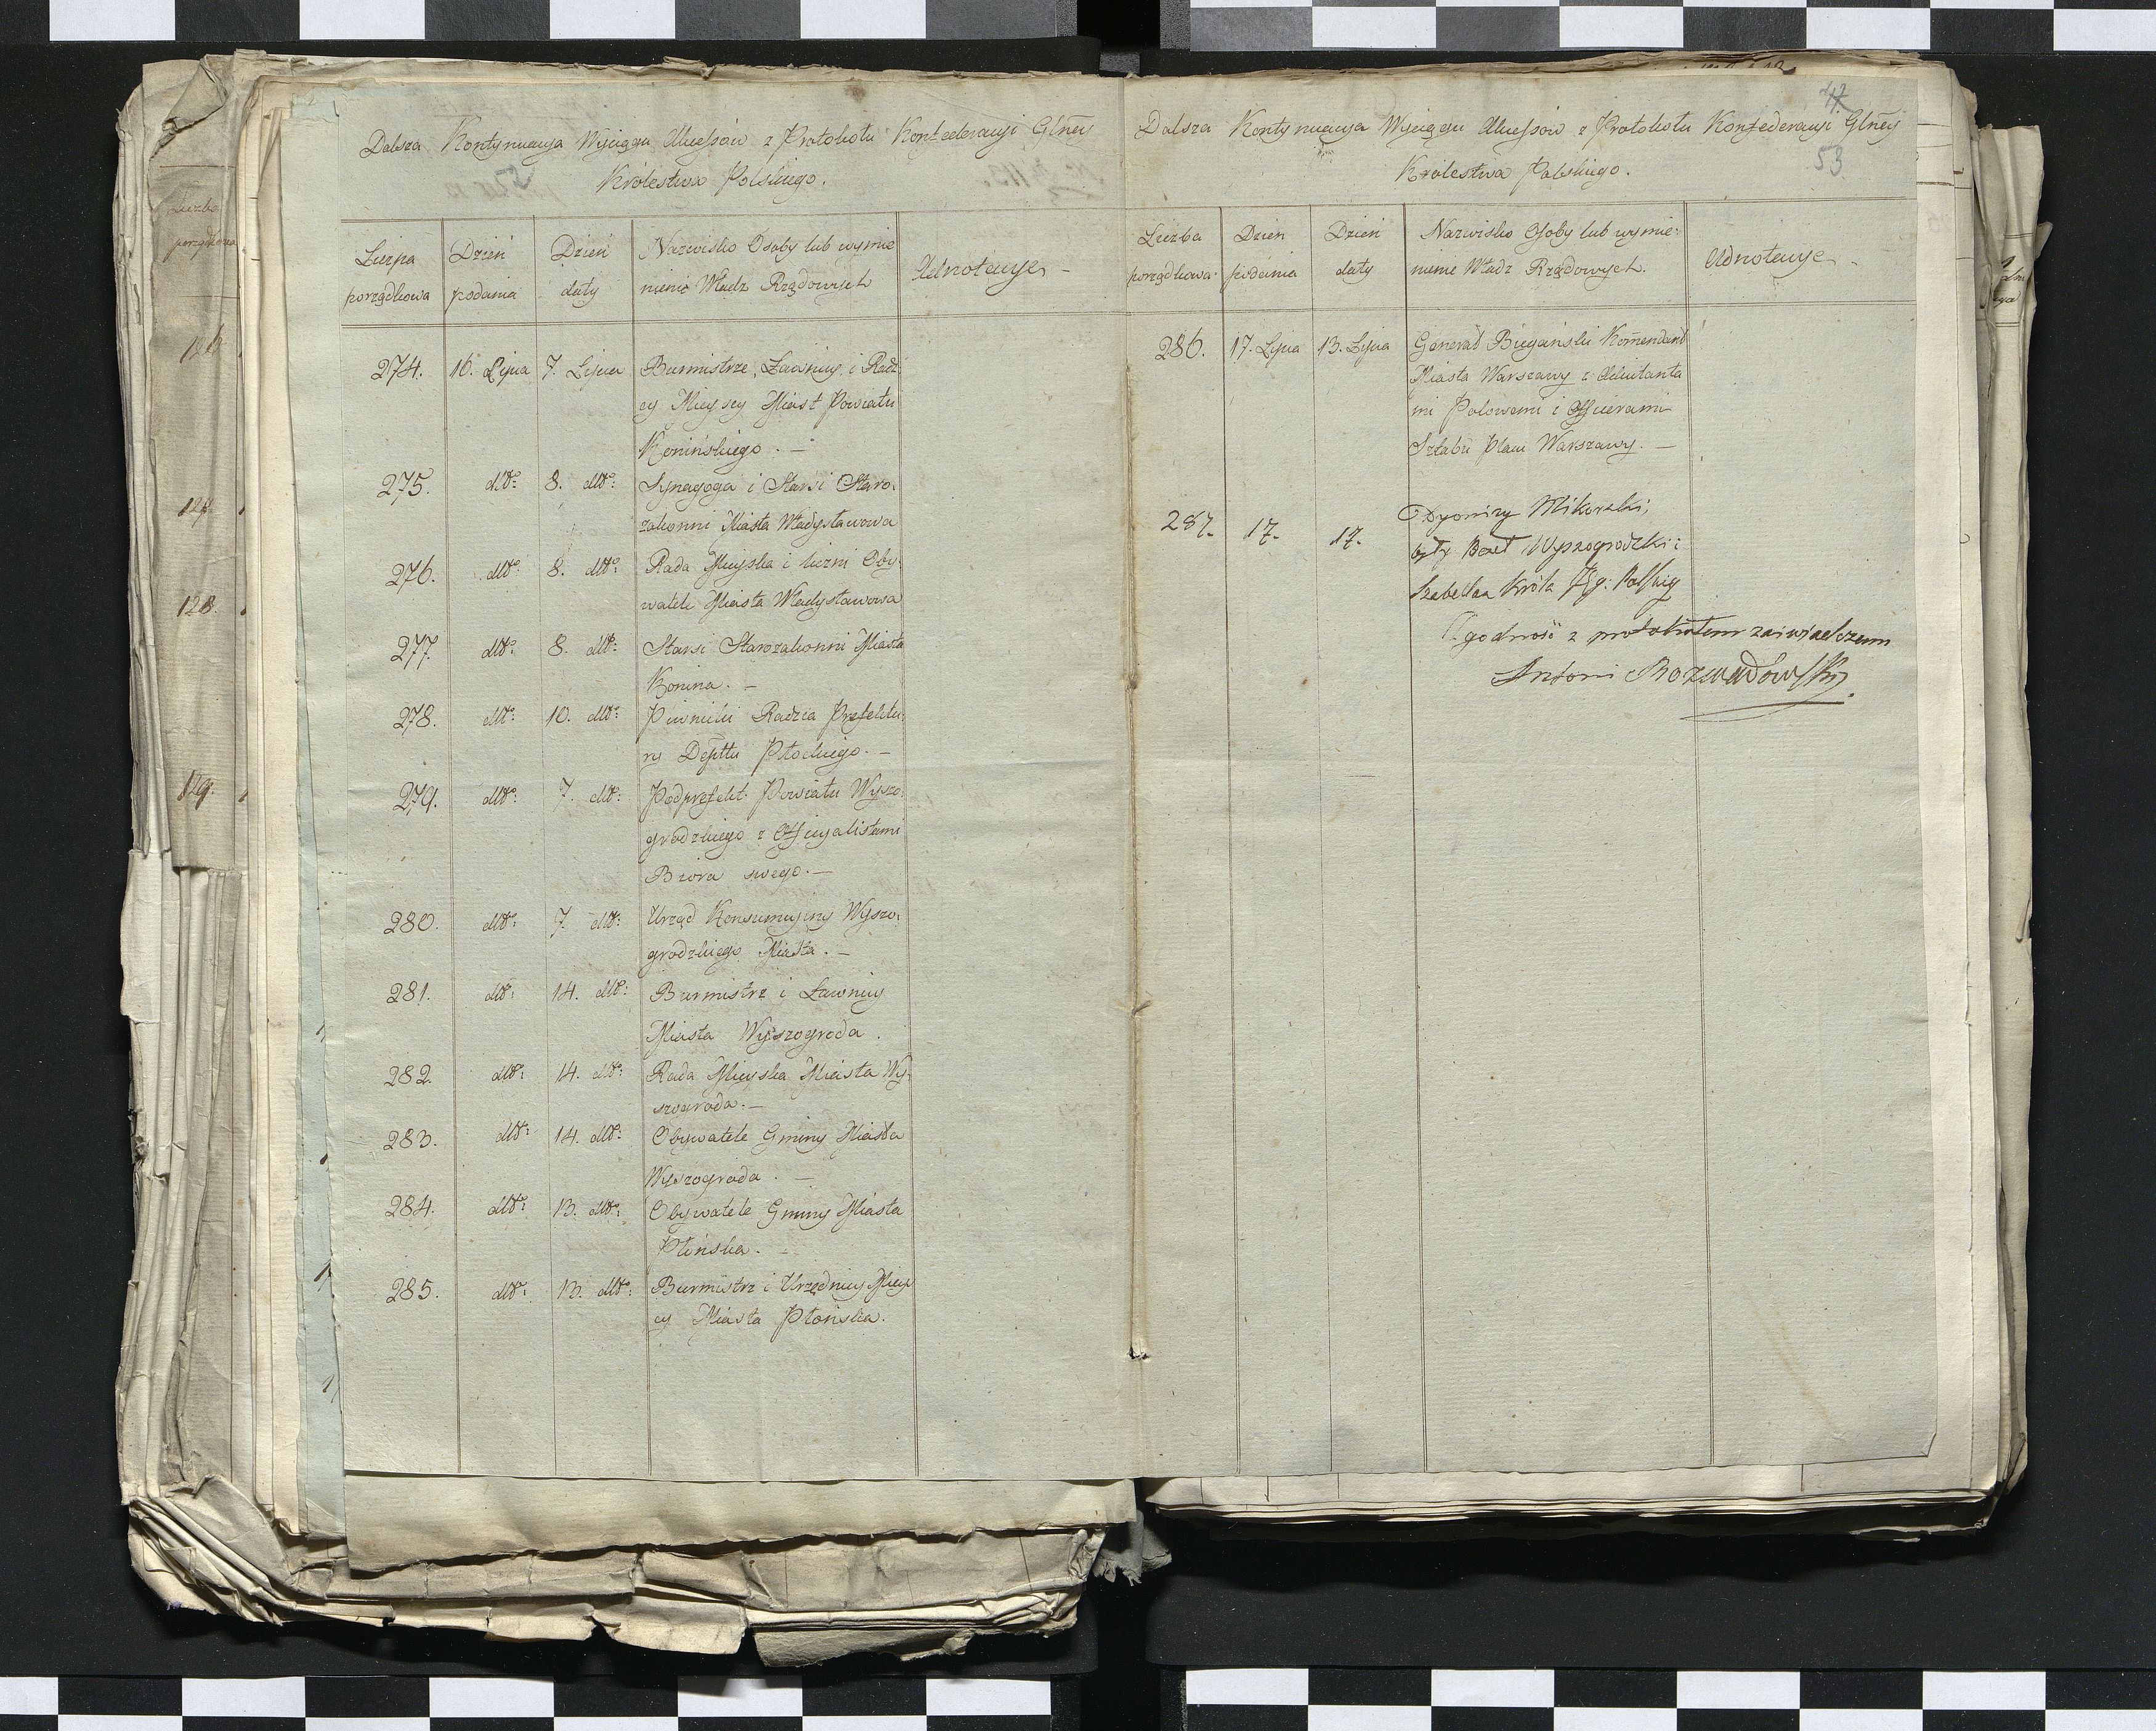 Dalsza Kontynuacya Wyciągu Akcessów z Protokołu Konfederacyi Glney
Królestwa Polskiego.
Liczba
porządkowa
Dzień
podania
Dzień
daty
Nazwisko Osoby lub wymie
nienie Władz Rządowych
Adnotacye
274. 16. Lipca 7. Lipca Burmistrze, Ławnicy, i Radz
cy Mieyscy Miast Powiatu
Konińskiego. –
275. dtto: 8. dtto: Synagoga i Starsi Staro:
zakonni Miasta Władysławowa
276. dtto: 8. dtto: Rada Mieyska i liczni Oby:
watele Miasta Władysławowa
277. dtto: 8. dtto: Starsi Starozakonni Miasta
Konina. –
278. dtto: 10. dtto: Piwnicki Radzca Prefektu:
ry Depttu Płockiego. –
279. dtto: 7. dtto: Podprefekt Powiatu Wyszo:
grodzkiego z Officyalistami
Biora swego. –
280. dtto: 7. dtto: Urząd Konsumcyiny Wyszo:
grodzkiego Miasta. –
281. dtto: 14. dtto: Burmistrz i Ławnicy
Miasta Wyszogroda.
282. dtto: 14. dtto: Rada Mieyska Miasta Wy:
szogroda. –
283. dtto: 14. dtto: Obywatele Gminy Miasta
Wyszogroda. –
284. dtto: 13. dtto: Obywatele Gminy Miasta
Płońska. –
285. dtto: 13. dtto: Burmistrz i Urzędnicy Mieys
cy Miasta Płońska.
47
53
Dalsza Kontynuacya Wyciągu Akcessów z Protokołu Konfederacyi Glney
Królestwa Polskiego.
Liczba
porządkowa
Dzien
podania
Dzień
daty
Nazwisko Osoby lub wymie:
nienie Władz Rządowych.
Adnotacye
286. 17. Lipca 13. Lipca Generał Biegański Komendant
Miasta Warszawy z Adiutanta
mi Polowemi i Officierami
Sztabu Placu Warszawy. –
287. 17. 17. Dyonizy Mikorski,
były Kaszt Wyszogrodzki i
Szambelan Króla
Zgodność z protokułem zaświadczam
Antoni Rozwadowski
Liczba
porządkowa
126.
127.
128.
129.